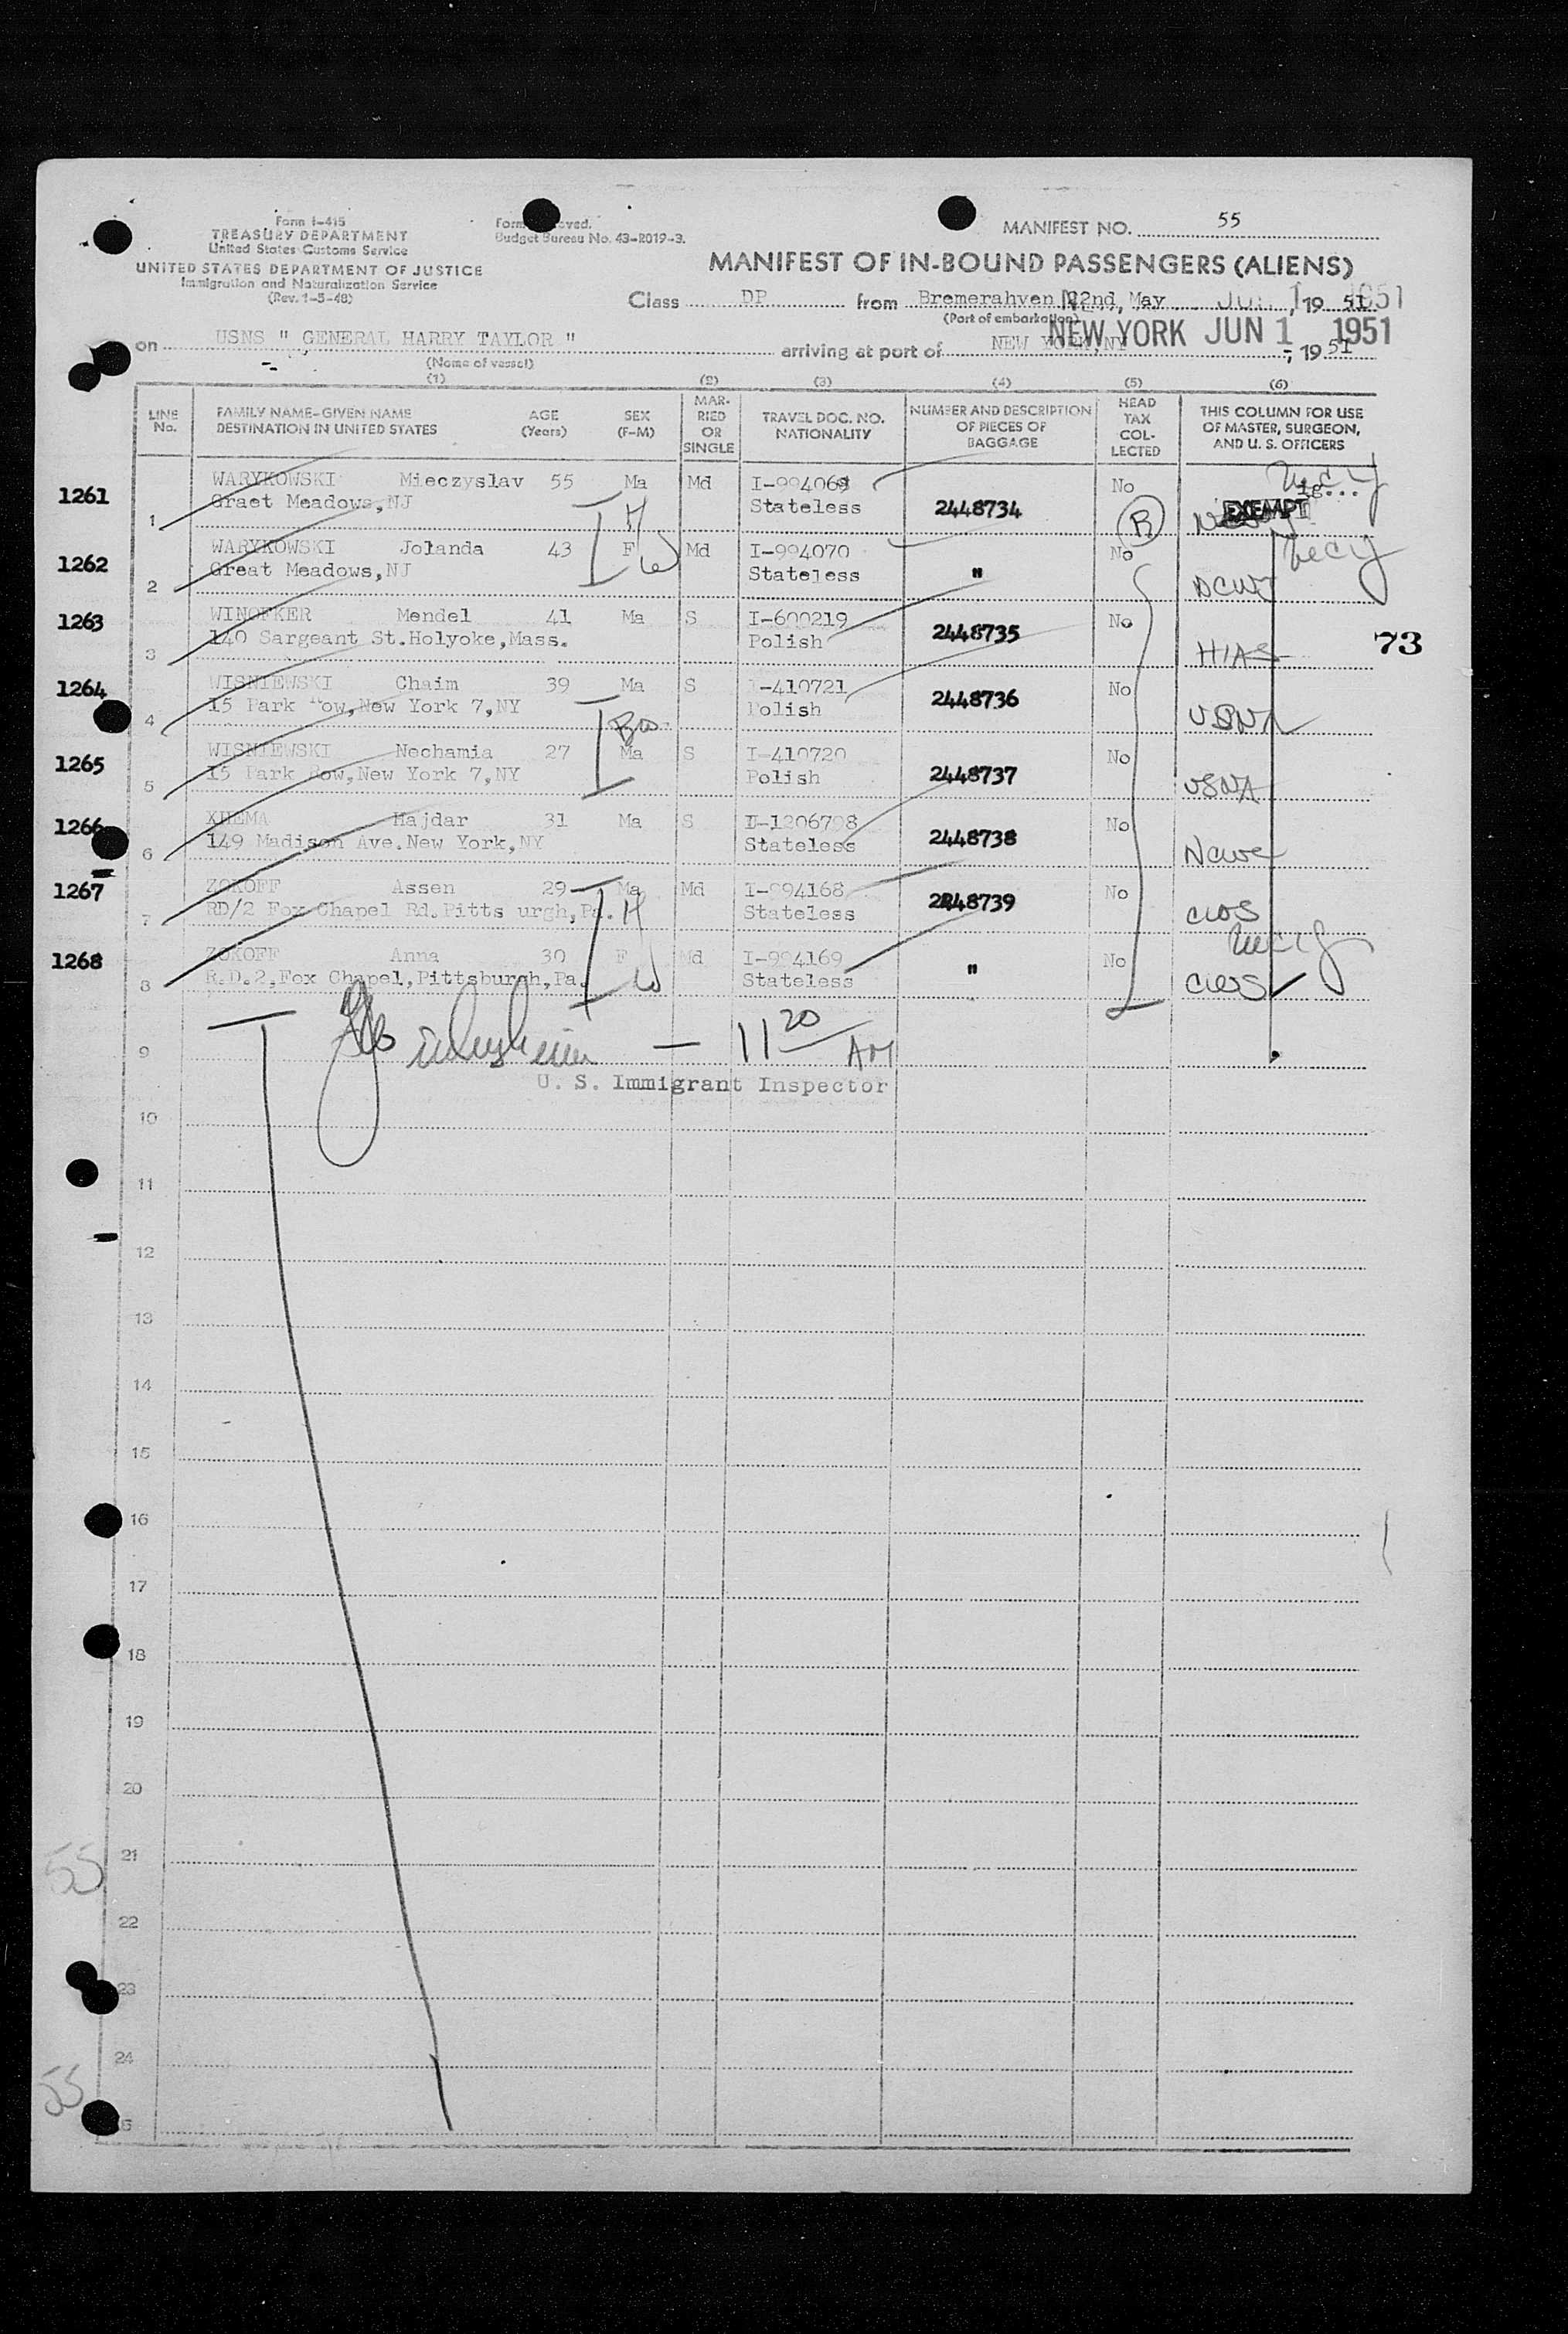 Form I-415
TREASURY DEPARTMENT
United States Customs Service
UNITED STATES DEPARTMENT OF JUSTICE
Immigration and Naturalization Service
(Rev. 1-5-48)
Budget Bureau No. 43-R019-3.
MANIFEST NO. 55
MANIFEST OF IN-BOUND PASSENGERS (ALIENS)
Class DP from Bremerahven 22nd, May, 19 51
(Port of embarkation)
NEW YORK JUN 1 1951
on USNS " GENERAL HARRY TAYLOR " arriving at port of NEW YORK, NY, 19 51
(Name of vessel)
(1) (2) (3) (4) (5) (6)
LINE No. FAMILY NAME-GIVEN NAME DESTINATION IN UNITED STATES AGE (Years) SEX (F-M) MARRIED OR SINGLE TRAVEL DOC. NO. NATIONALITY NUMBER AND DESCRIPTION OF PIECES OF BAGGAGE HEAD TAX COLLECTED THIS COLUMN FOR USE OF MASTER, SURGEON, AND U. S. OFFICERS
1261 WARYKOWSKI Mieczyslav 55 Ma Md I-994069 No
1 Graet Meadows,NJ H Stateless 2448734 R EXEMPT
1262 WARYKOWSKI Jolanda 43 F Md I-994070 No
2 Great Meadows,NJ W Stateless "
1263 WINOFKER Mendel 41 Ma S I-600219 No
3 140 Sargeant St.Holyoke,Mass. Polish 2448735 HIAS
73
1264 WISNIEWSKI Chaim 39 Ma S I-410721 No
4 15 Park Row,New York 7,NY Polish 2448736 USNA
1265 WISNIEWSKI Nechamia 27 Ma S I-410720 No
5 15 Park Row,New York 7,NY Polish 2448737 USNA
1266 XHEMA Hajdar 31 Ma S 1206798 No
6 149 Madison Ave.New York,NY Stateless 2448738 NCWC
1267 ZOKOFF Assen 29 Ma Md I-994168 No
7 RD/2 Fox Chapel Rd.Pitts urgh,Pa. H Stateless 2248739 CWS
1268 ZOKOFF Anna 30 F Md I-994169 No
8 R.D.2,Fox Chapel,Pittsburgh,Pa. W Stateless " CWS
9 — 11 20 AM
U. S. Immigrant Inspector
10
11
12
13
14
15
16
17
18
19
20
21
55
22
23
24
55